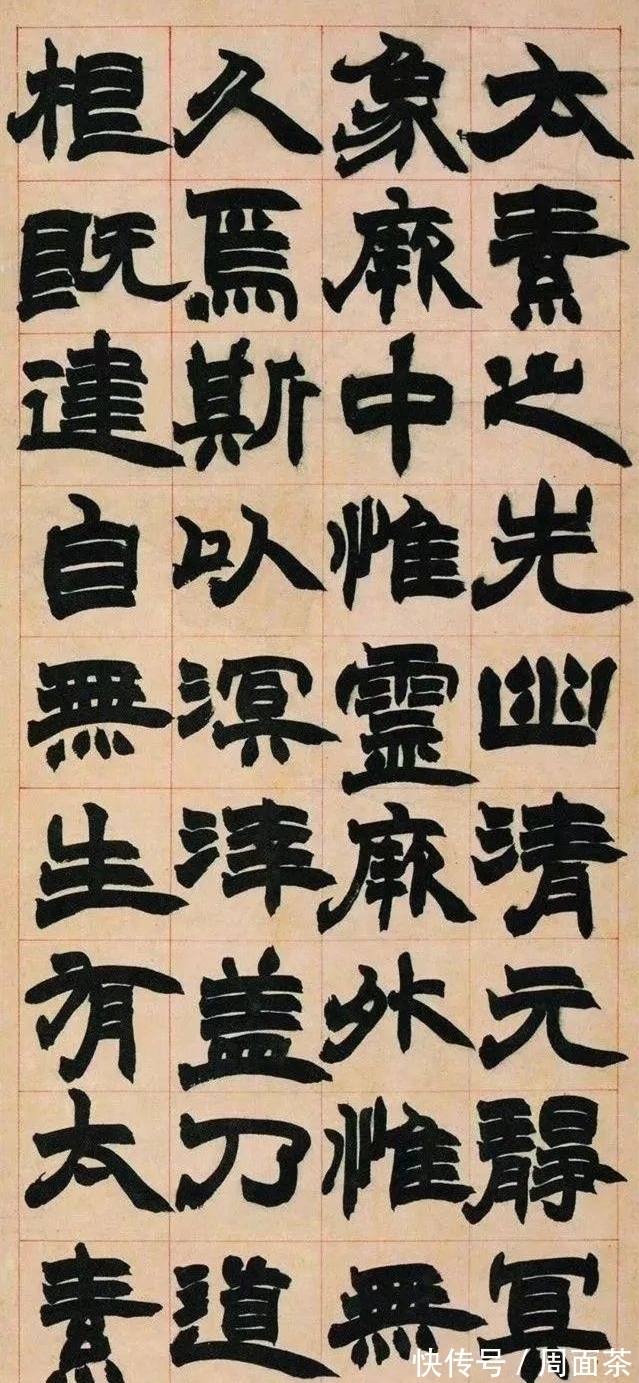 太素之先幽清元靜
象厥中惟靈厥外惟無
久焉斯以溟涬盖乃道
根既建自無生有太素
快传号 / 周面茶